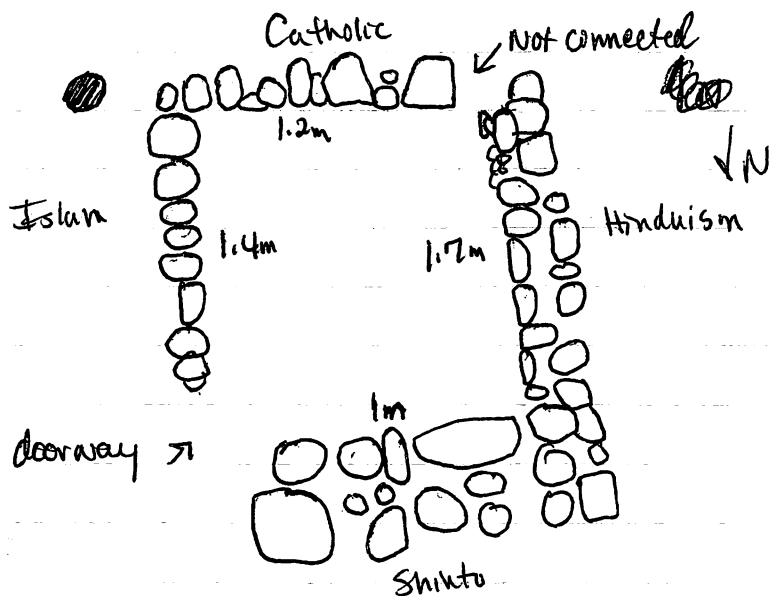 Catholic
Not connected
1.2m
N
Islam
1.4m
1.7m
Hinduism
1m
doorway
Shinto